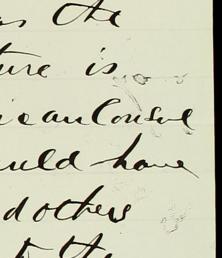 as the
ture is
icanConsul
uld have
d others
to the